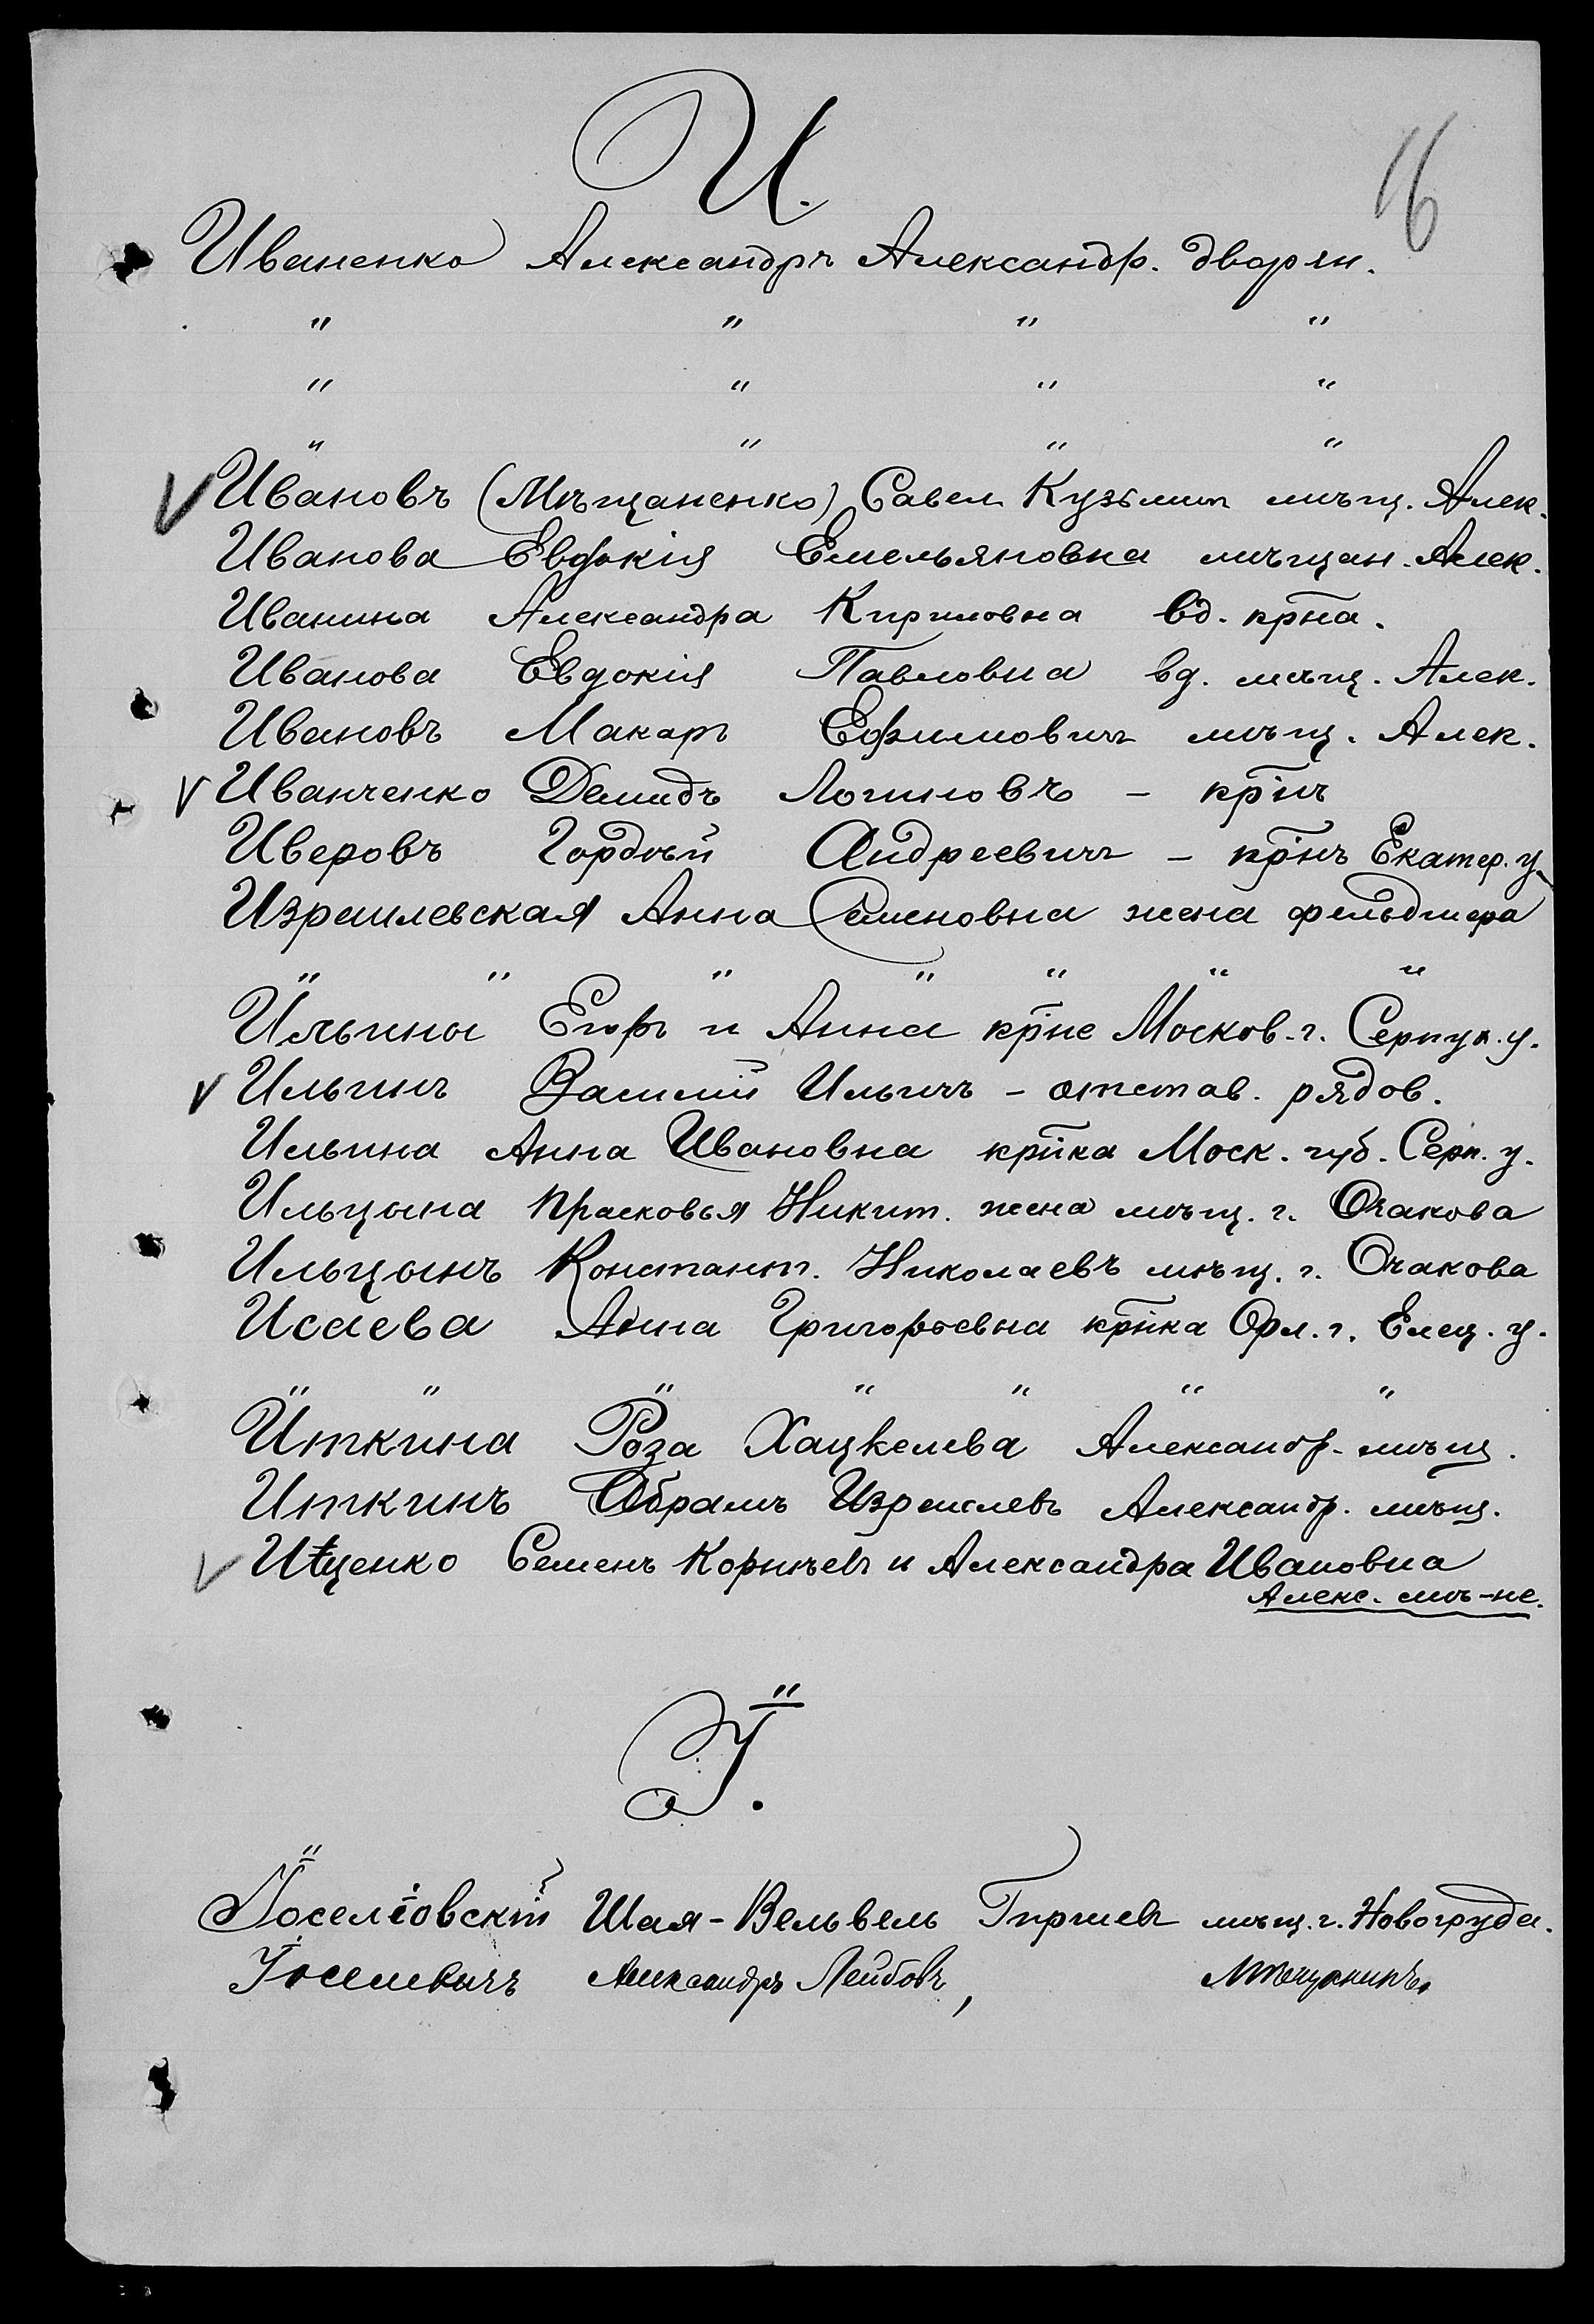 И.
16
Иваненко Александръ Александр. дворян.
" " " "
" " " "
" " " "
V Ивановъ (Мѣщаненко) Савел Кузьмин мѣщ. Алек.
Иванова Евдокія Емельяновна мѣщан. Алек.
Иванина Александра Кириловна вд. крна.
Иванова Евдокія Павловна вд. мѣщ. Алек.
Ивановъ Макаръ Ефимович мѣщ. Алек.
V Иванченко Демидъ Логиновъ – крнъ
Иверовъ Гордѣй Андреевичъ – крнъ Екатер. у.
Израилевская Анна Семеновна жена фельдшера
" " " " " " "
Ильины Егоръ и Анна крне Москов. г. Серпух. у.
V Ильинъ Василій Ильичъ – отстав. рядов.
Ильина Анна Ивановна крнка Моск. губ. Серп. у.
Ильцына Прасковья Никит. жена мѣщ. г. Очакова
Ильцынъ Констант. Николаевъ мѣщ. г. Очакова
Исаева Анна Григорьевна крнка Орл. г. Елец. у.
" " " " " " "
Иткина Роза Хацкелева Александр. мѣщ.
Иткинъ Абрамъ Израилевъ Александр. мѣщ.
V Иѣценко Семенъ Корнѣев и Александра Ивановна
Алекс. мѣ-не.
І.
Іоселіовскій Шая-Вельвель Гиршев мѣщ. г. Новогрудк.
Іоселевичъ Александръ Лейбовъ,